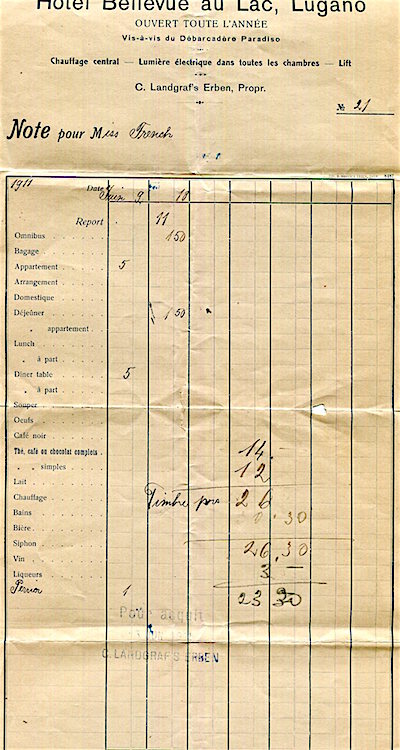 Hôtel Bellevue au Lac, Lugano
OUVERT TOUTE L'ANNÉE
Vis-à-vis du Débarcadère Paradiso
Chauffage central — Lumière électrique dans toutes les chambres — Lift
C. Landgraf's Erben, Propr.
№ 21
Note pour Miss French
1911
Date Juin 9 10
Report 11
Omnibus 1 50
Bagage
Appartement 5
Arrangement
Domestique
Déjeûner 1 50
" appartement
Lunch
" à part
Diner table 5
" à part
Souper
Oeufs
Café noir
Thé, café ou chocolat complets 14.-
" " simples 12
Lait
Chauffage Timbre pour 26
Bains 30
Bière
Siphon 26.30
Vin 3 —
Liqueurs
1 23 30
Pour acquit
C. LANDGRAF'S ERBEN